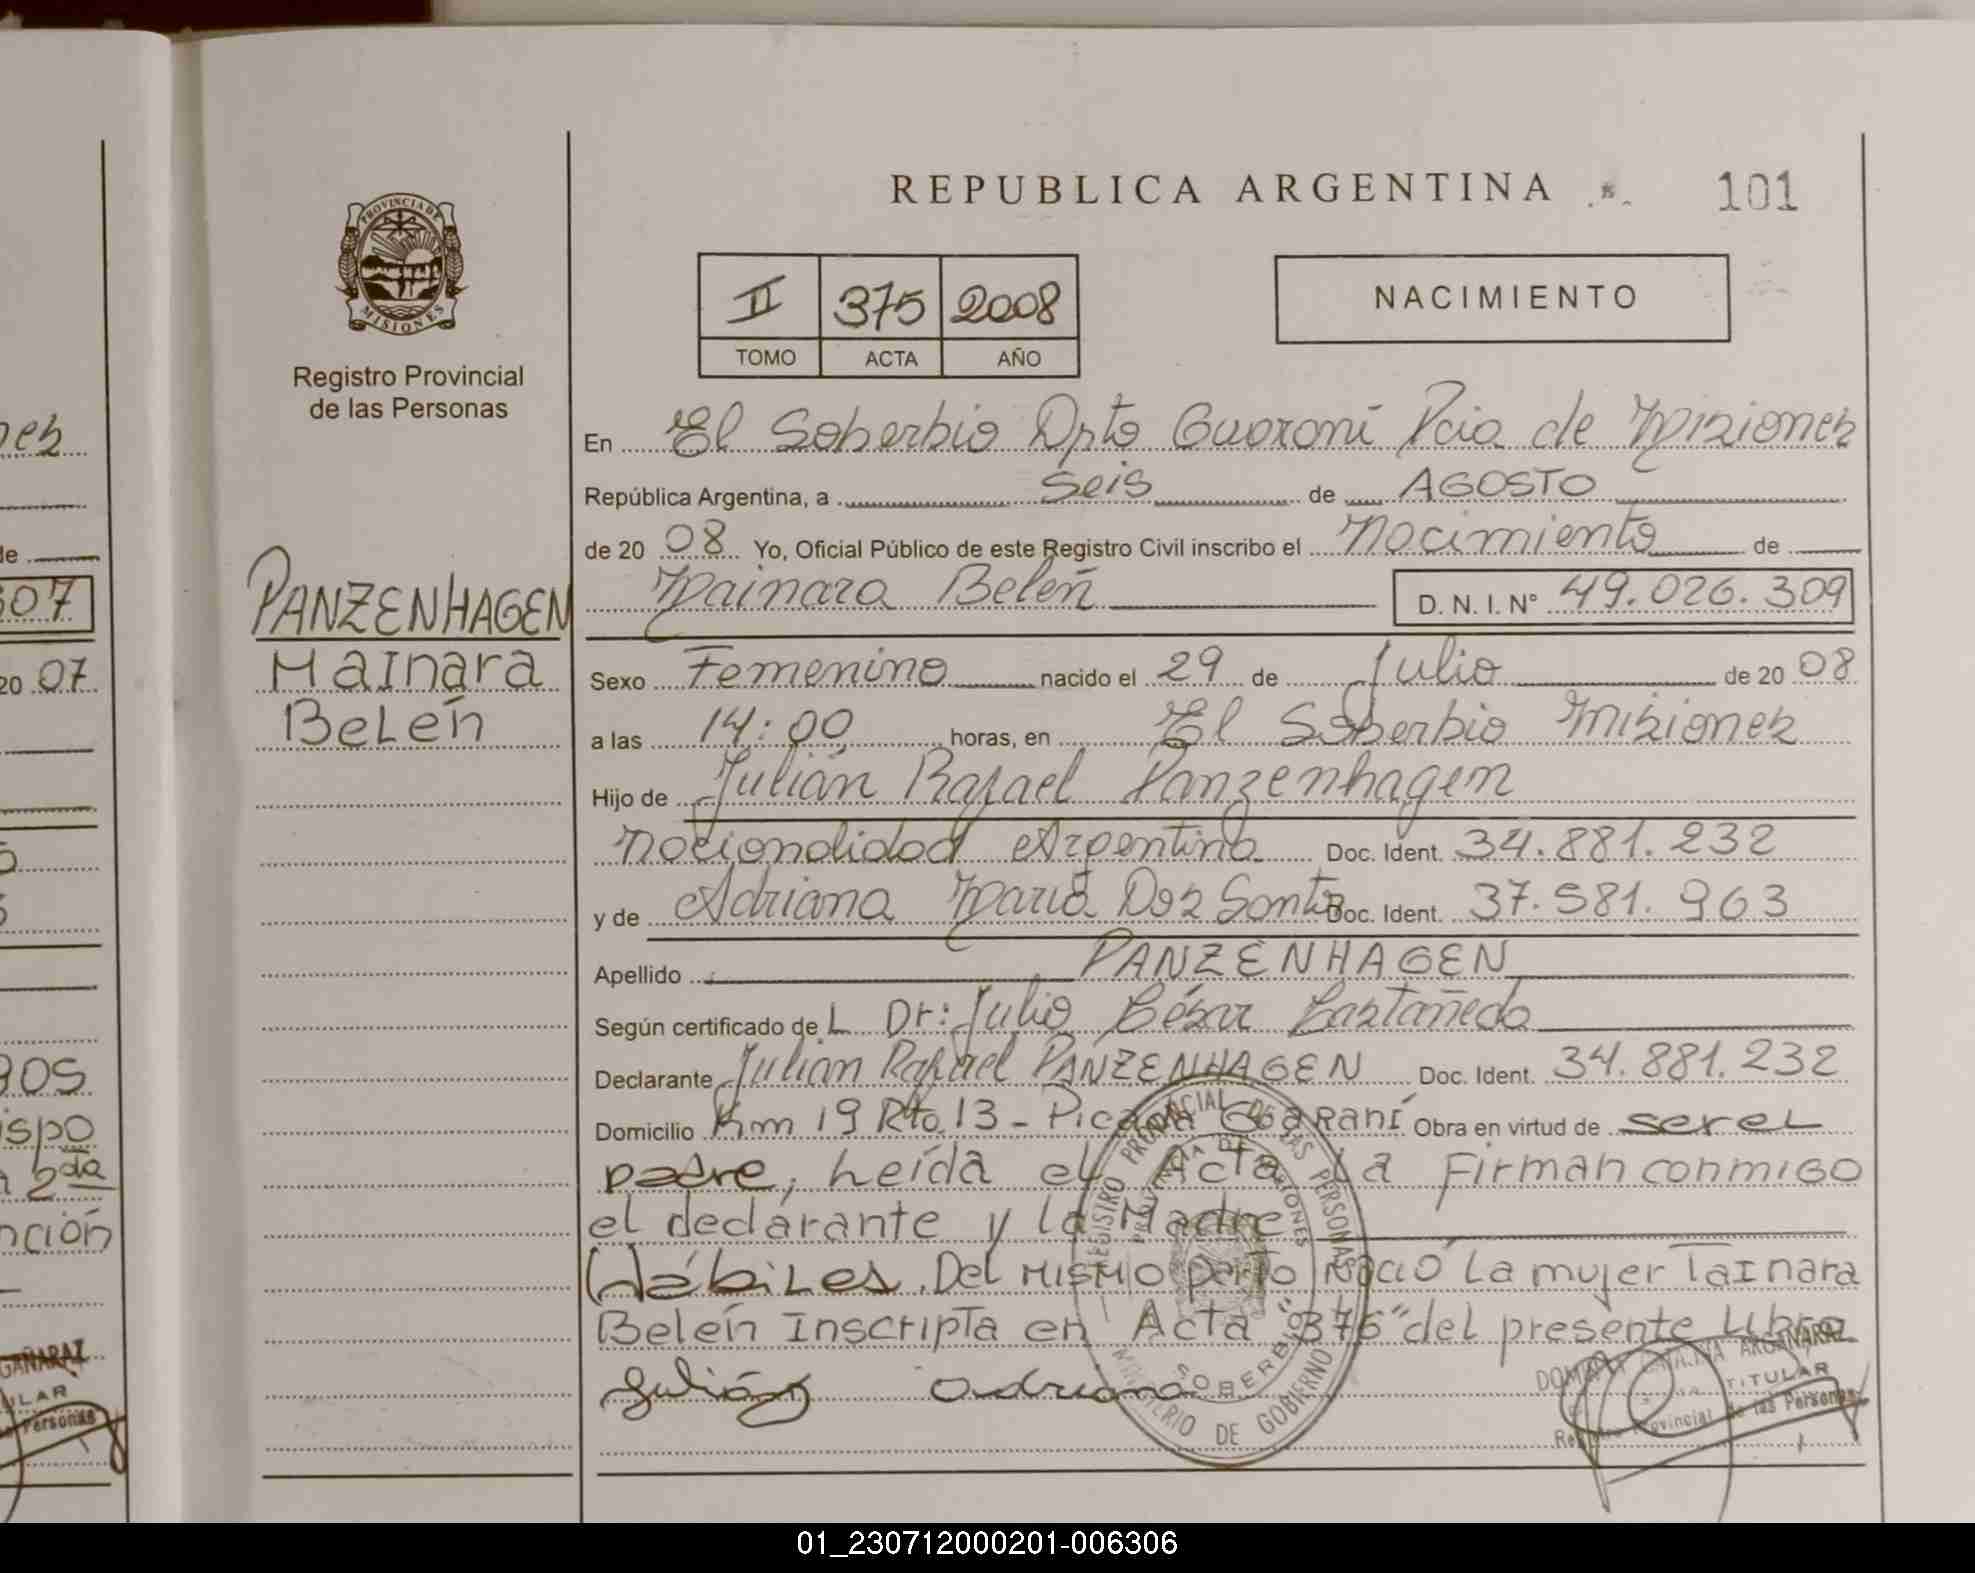 REPUBLICA ARGENTINA
101
PROVINCIA DE
MISIONES
Registro Provincial
de las Personas
II 375 2008
TOMO ACTA AÑO
NACIMIENTO
En El Soberbio Dpto Guaraní Pcia de Misiones
República Argentina, a Seis de AGOSTO
de 20 08 Yo, Oficial Público de este Registro Civil inscribo el Nacimiento de
Mainara Belén D. N. I. Nº 49.026.309
PANZENHAGEN
Mainara
Belén
Sexo Femenino nacido el 29 de Julio de 20 08
a las 14:00 horas, en El Soberbio Misiones
Hijo de Julián Rafael Panzenhagen
Nacionalidad Argentina Doc. Ident. 34.881.232
y de Adriana María Dos Santos Doc. Ident. 37.581.963
Apellido PANZENHAGEN
Según certificado del Dr: Julio César Castañeda
Declarante Julián Rafael PANZENHAGEN Doc. Ident. 34.881.232
Domicilio Km 19 Rta 13 - Picada Guaraní Obra en virtud de ser el
padre, heída el Acta la Firman conmigo
el declarante y la Madre
Hábiles. Del mismo parto nació la mujer Tainara
Belén Inscripta en Acta "376" del presente Libro
Julián Adriana
REGISTRO PROVINCIAL DE LAS PERSONAS
PROVINCIA DE MISIONES
SOBERBIO
MINISTERIO DE GOBIERNO
ARGAÑARAZ
TITULAR
Registro Provincial de las Personas
nes
de
607
20 07
90S
ispo
2da
nción
GAÑARAZ
ULAR
Personas
01_230712000201-006306